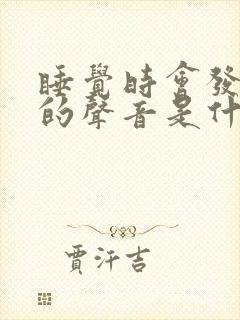 睡覺時會發
的聲音是什
賈汗吉